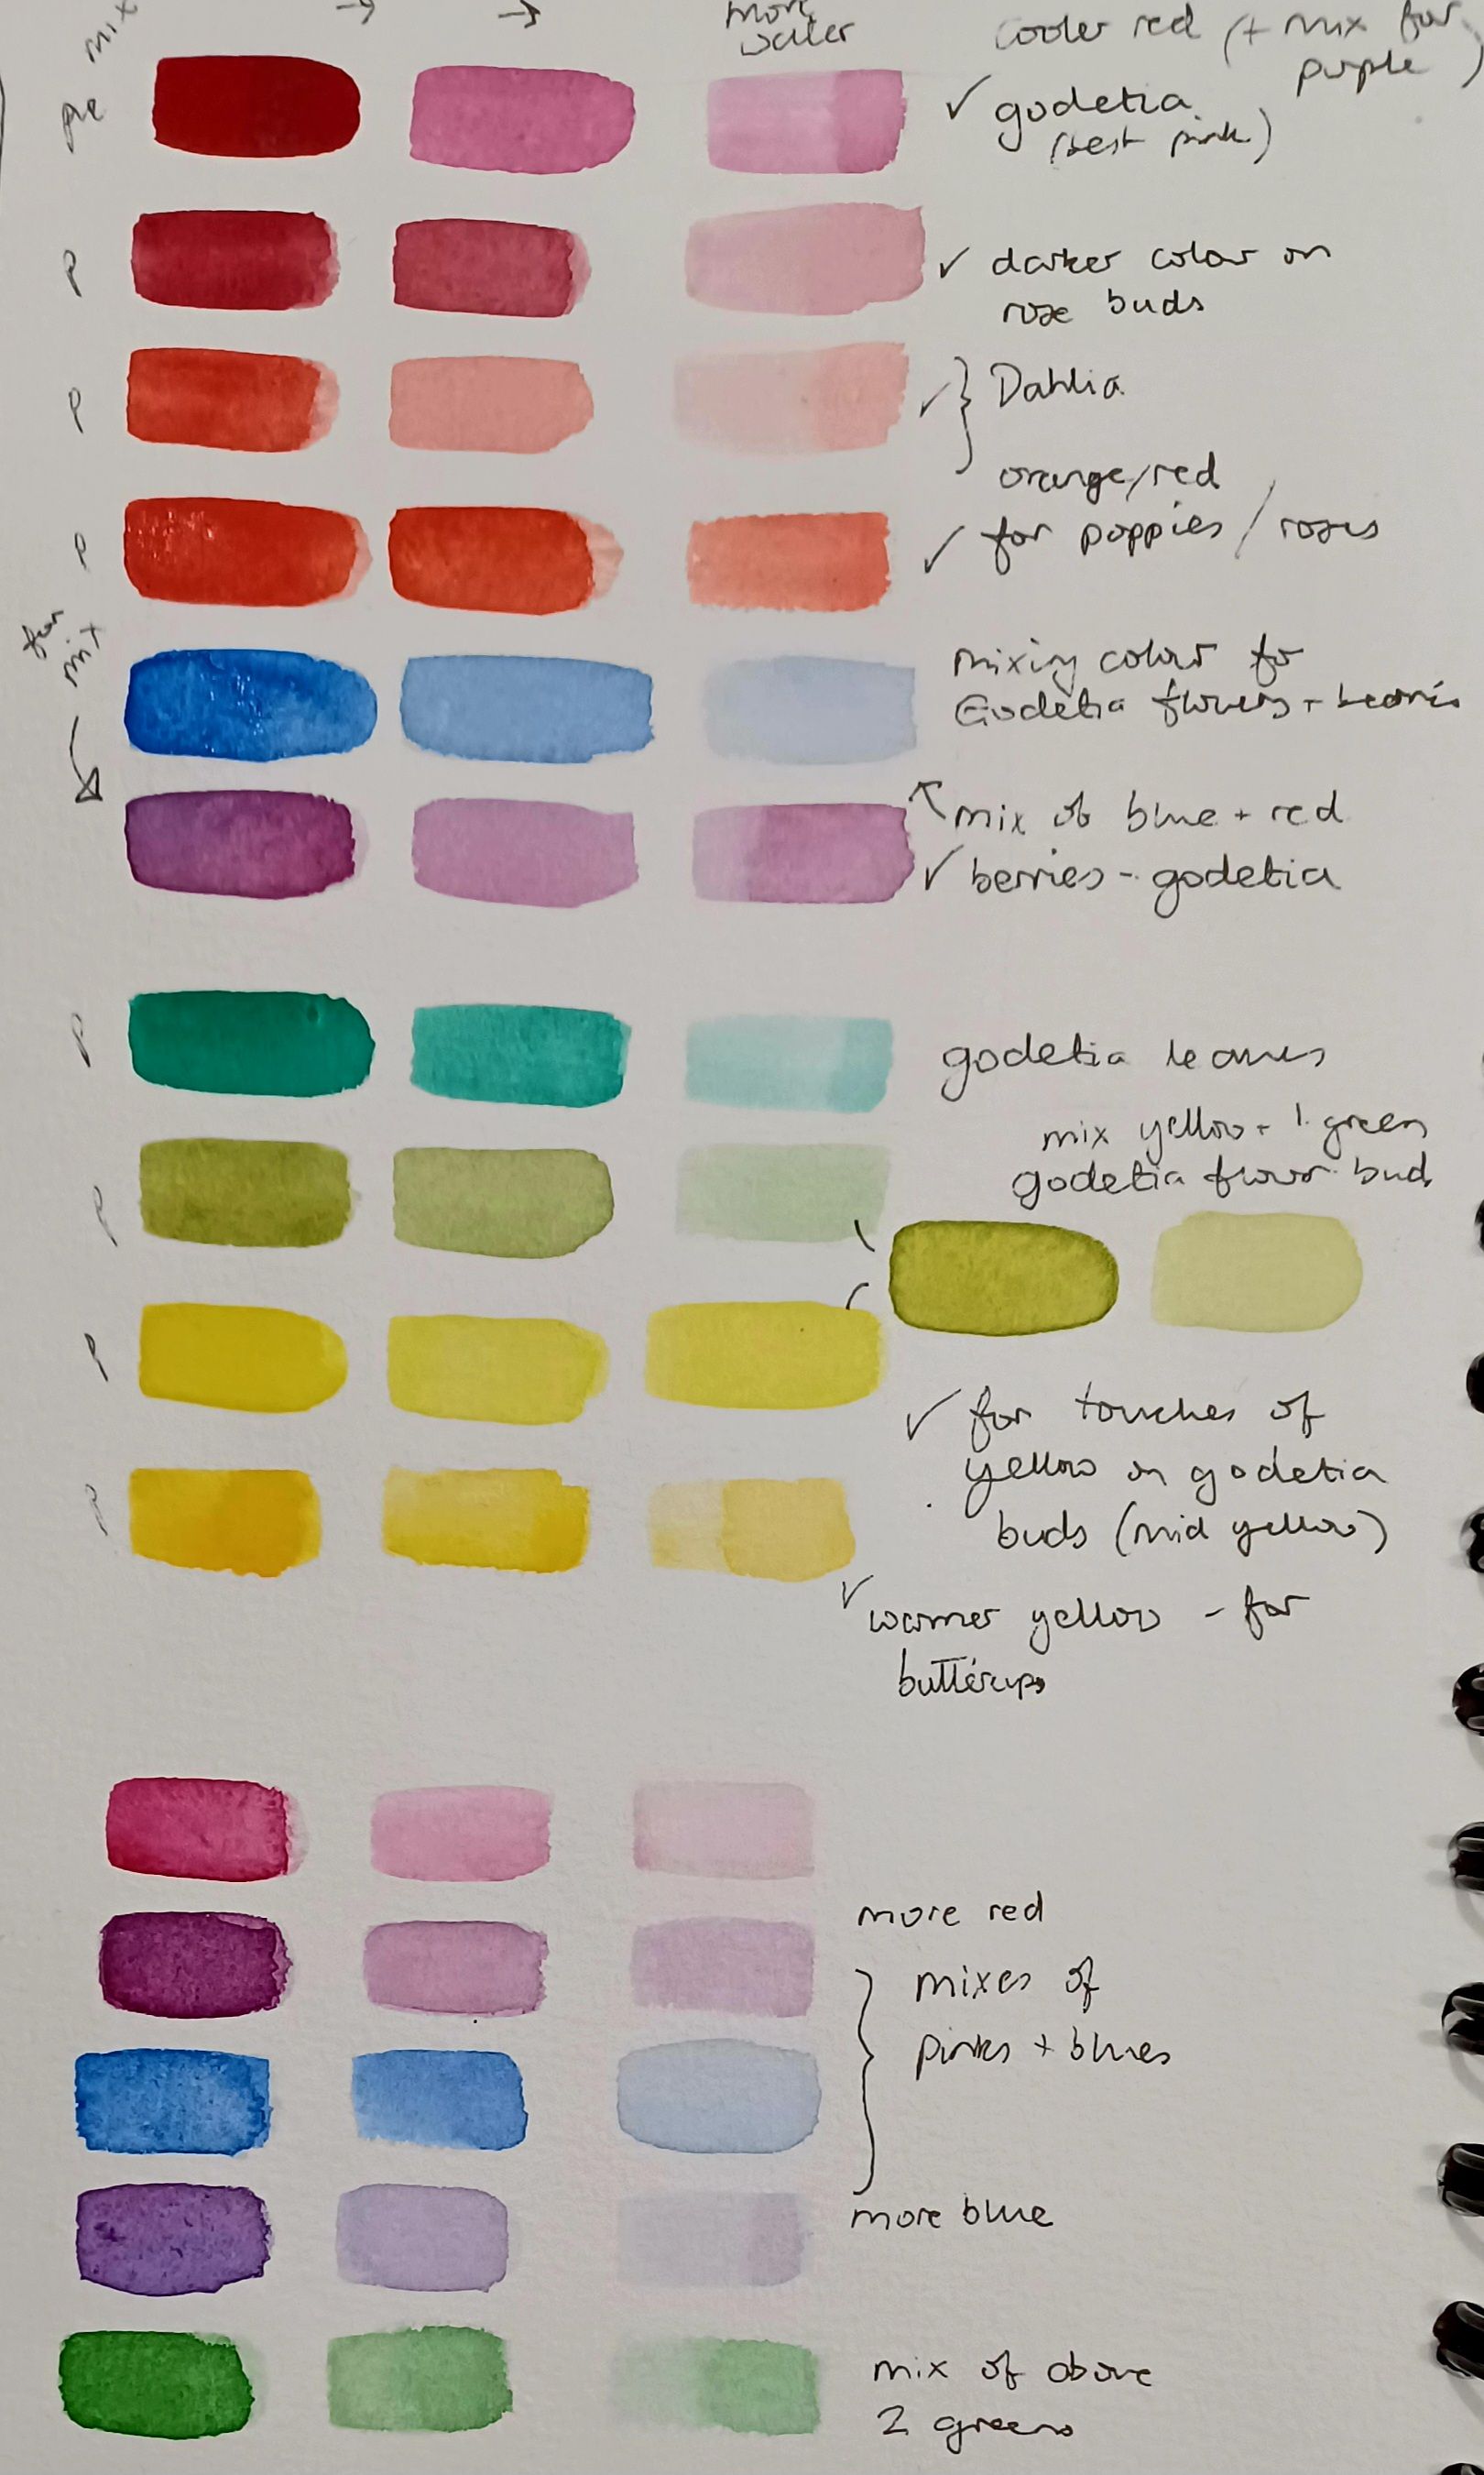 mix → → more
water
cooler red (+ mix for
purple)
pre
✓ godetia
(best pink)
P
✓ darker colour on
rose buds
P
✓ } Dahlia
orange/red
P
✓ for poppies / roses
for
mix
mixing colour for
Godetia flowers +
mix of blue + red
✓ berries - godetia
P
godetia leaves
mix yellow + 1 green
godetia flower bud
P
P
✓ for touches of
yellow on godetia
buds (mid yellow)
P
✓ warmer yellow - for
buttercups
more red
mixes of
pinks + blues
more blue
mix of above
2 greens